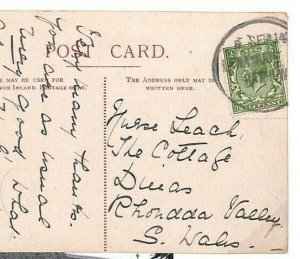 POST CARD.
MAY BE USED FOR
FOR INLAND POSTAGE ONLY.
THE ADDRESS ONLY MAY BE
WRITTEN HERE.
Very many thanks.
You are as usual
very good what
Nurse Leach,
The Cottage
Dinas
Rhondda Valley
S. Wales.